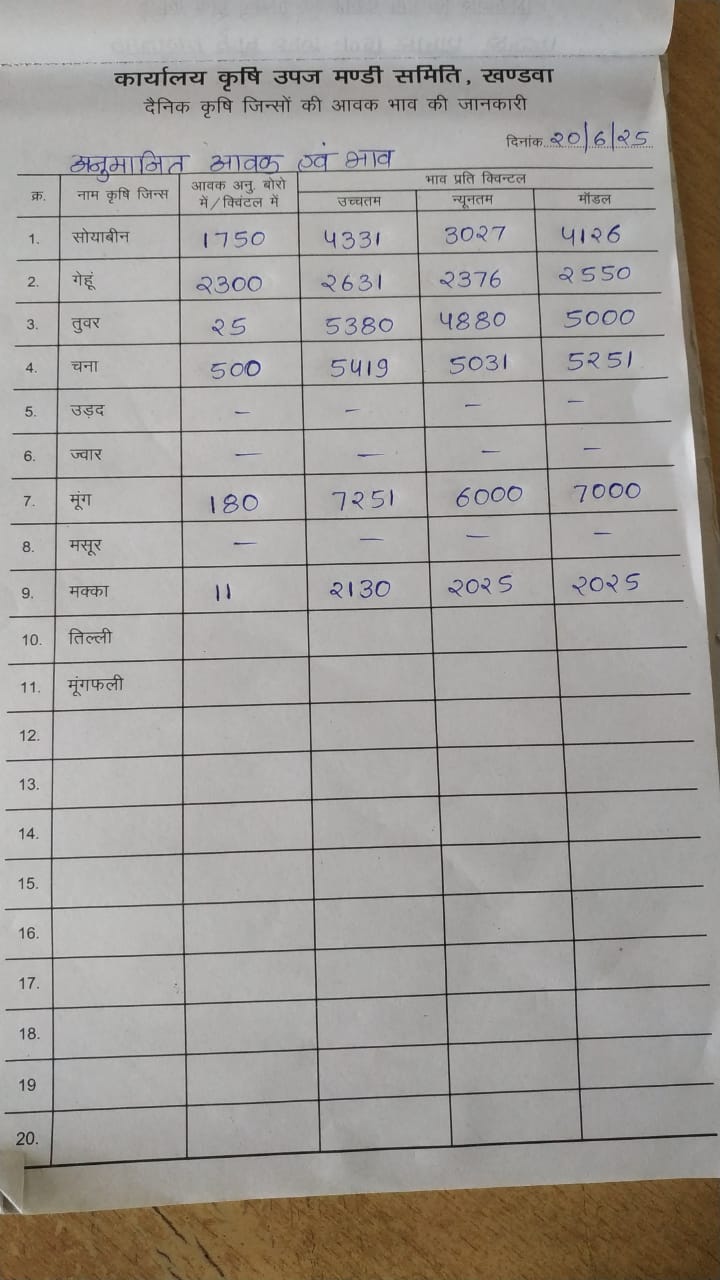 कार्यालय कृषि उपज मण्डी समिति, खण्डवा
दैनिक कृषि जिन्सों की आवक भाव की जानकारी
दिनांक २०/6/२5
अनुमानित आवक एवं भाव
क्र. नाम कृषि जिन्स आवक अनु. बोरो में/क्विंटल में भाव प्रति क्विन्टल
उच्चतम न्यूनतम मॉडल
1. सोयाबीन 1750 4331 30२7 41२6
2. गेहूं २300 २631 २376 २550
3. तुवर २5 5380 4880 5000
4. चना 500 5419 5031 5२51
5. उड़द – – – –
6. ज्वार – – – –
7. मूंग 180 7२51 6000 7000
8. मसूर – – – –
9. मक्का 11 २130 २0२5 २0२5
10. तिल्ली
11. मूंगफली
12.
13.
14.
15.
16.
17.
18.
19
20.